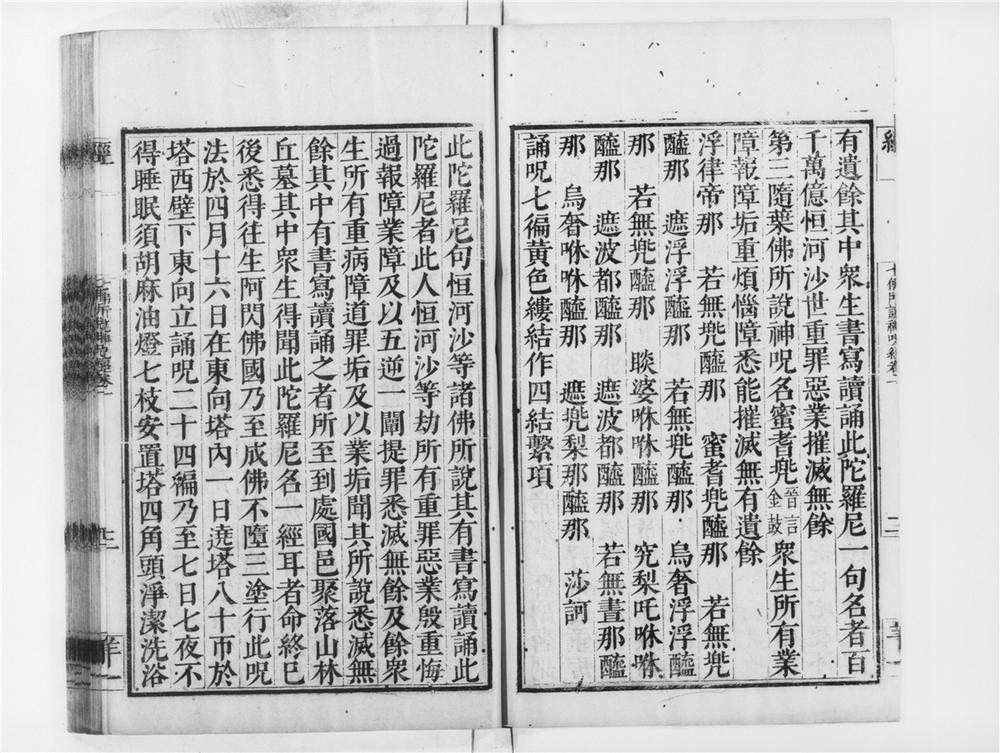 有遺餘其中衆生書寫讀誦此陀羅尼一句名者百
千萬億恒河沙世重罪惡業摧滅無餘
第三隨葉佛所說神呪名蜜耆兜晉言金鼓衆生所有業
障報障垢重煩惱障悉能摧滅無有遺餘
浮律帝那　若無兜醯那　蜜耆兜醯那　若無兜
醯那　遮浮浮醯那　若無兜醯那　烏奢浮浮醯
那　若無兜醯那　睒婆咻咻醯那　究梨吒咻咻
醯那　遮波都醯那　遮波都醯那　若無晝那醯
那　烏奢咻咻醯那　遮兜梨那醯那　莎訶
誦呪七徧黃色縷結作四結繫項
此陀羅尼句恒河沙等諸佛所說其有書寫讀誦此
陀羅尼者此人恒河沙等劫所有重罪惡業殷重悔
過報障業障及以五逆一闡提罪悉滅無餘及餘衆
生所有重病障道罪垢及以業垢聞其所說悉滅無
餘其中有書寫讀誦之者所至到處國邑聚落山林
丘墓其中衆生得聞此陀羅尼名一經耳者命終已
後悉得往生阿閃佛國乃至成佛不墮三塗行此呪
法於四月十六日在東向塔內一日遶塔八十帀於
塔西壁下東向立誦呪二十四徧乃至七日七夜不
得睡眠須胡麻油燈七枝安置塔四角頭淨潔洗浴
經
七佛所說神呪經卷一
三
羊一